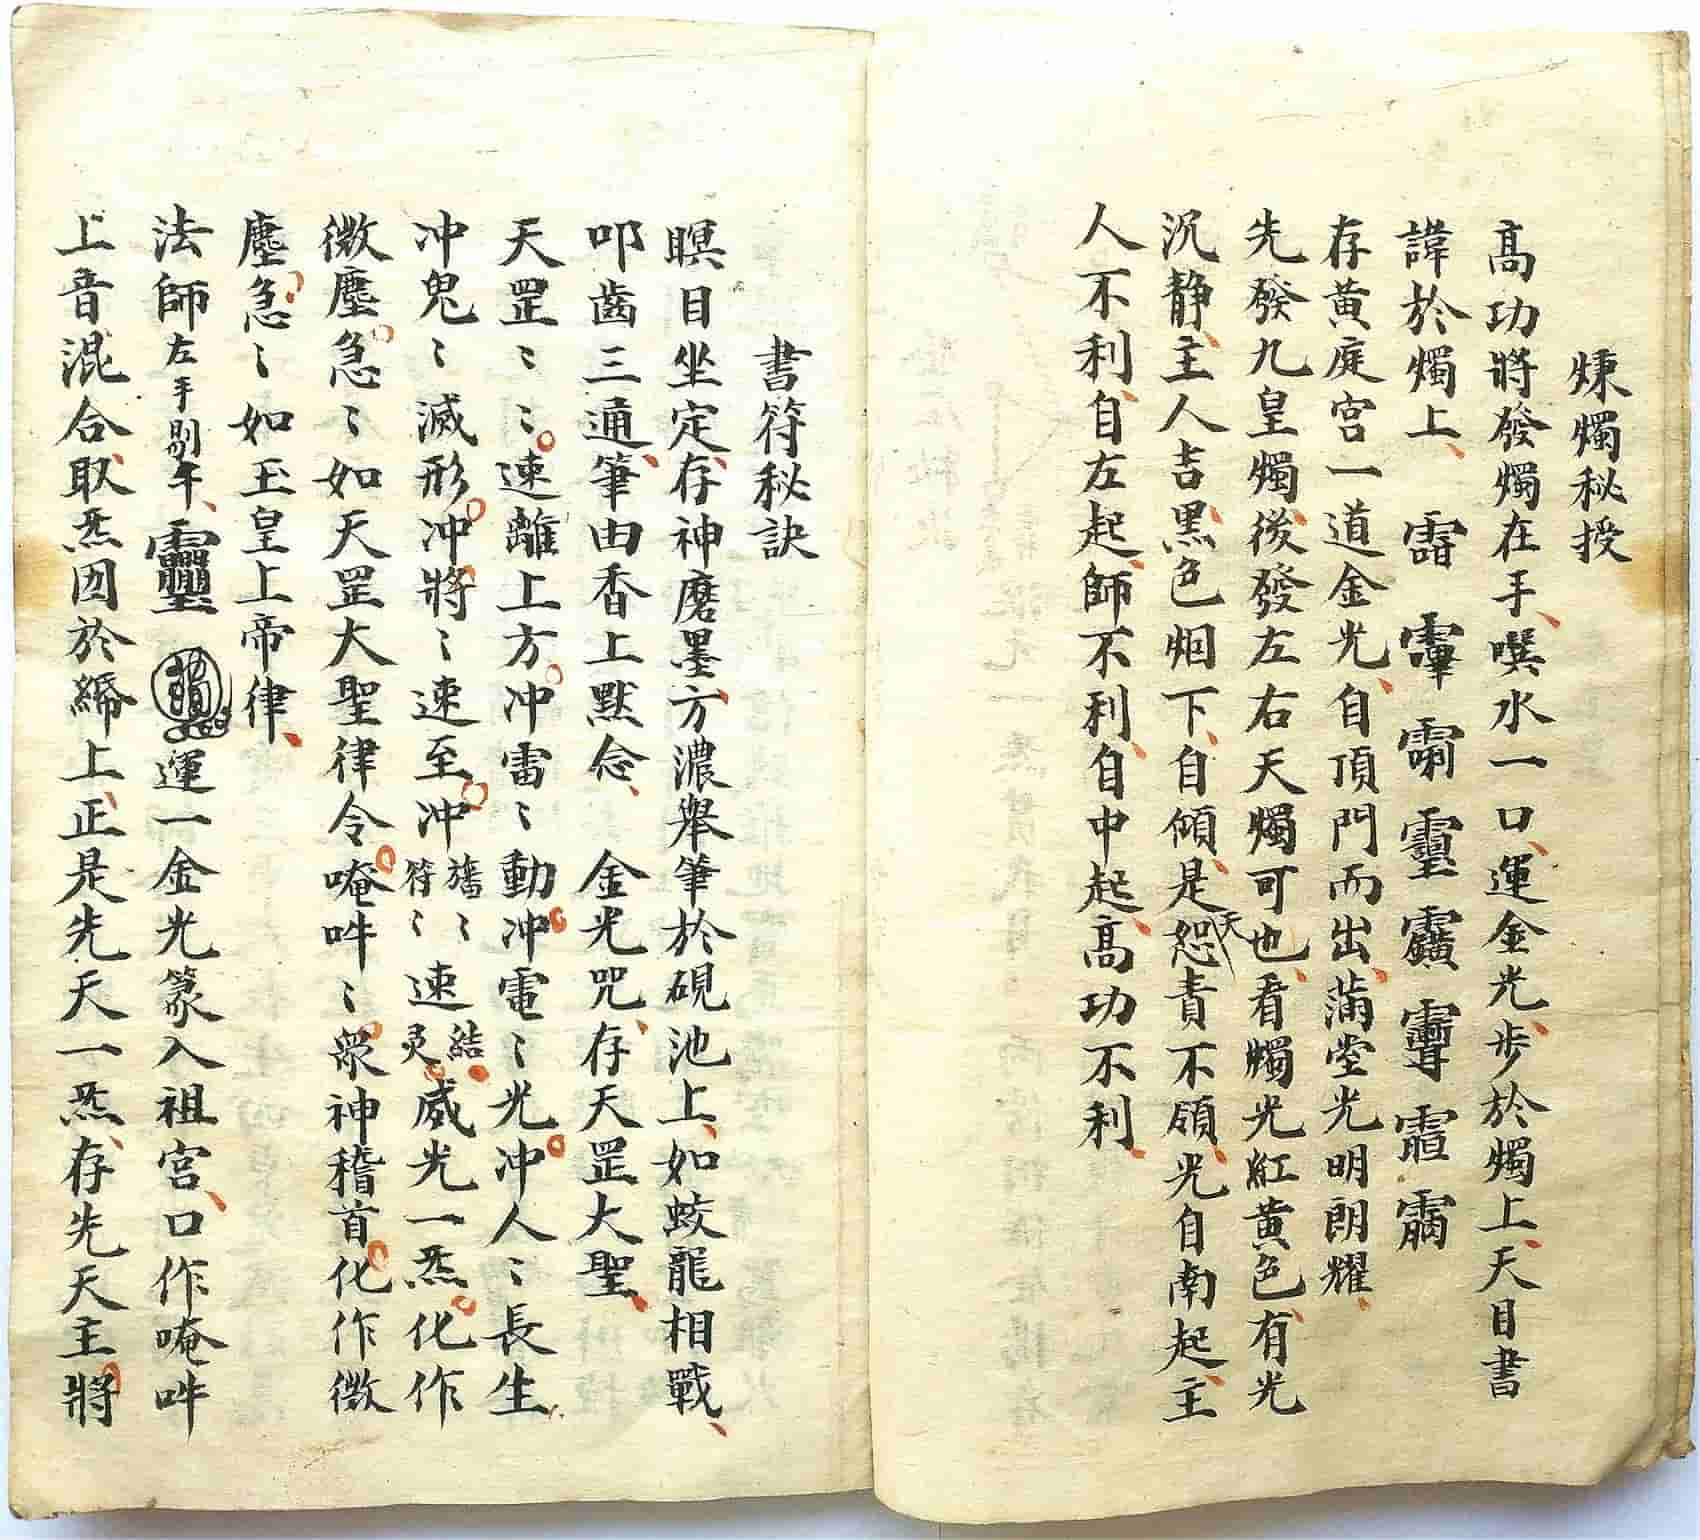 煉燭秘授
高功將發燭在手、噀水一口、運金光、步於燭上、天目書
諱於燭上、
存黄庭宫一道金光、自頂門而出、滿堂光明朗耀、
先發九皇燭後、發左右天燭可也、看燭光紅黄色、有光
沉静、主人吉、黑色烟下、自傾、是天怒責不領、光自南起、主
人不利、自左起、師不利、自中起、高功不利、
書符秘訣
瞑目坐定、存神磨墨、方濃舉筆於硯池上、如蛟龍相戰、
叩齒三通、筆由香上默念、金光咒、存天罡大聖、
天罡〻〻速離上方冲雷〻動冲電〻光冲人〻長生
冲鬼〻滅形冲將〻速至冲旛符〻〻速結灵威光一炁化作
微塵急〻如天罡大聖律令唵吽〻眾神稽首化作微
塵急〻如玉皇上帝律、
法師左手剔午、運一金光篆入祖宫、口作唵吽
上音混合、取炁因於締上、正是先天一炁、存先天主將